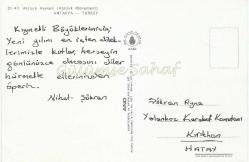 Atatürk Heykeli (Atatürk Monument)
ANTAKYA – TURKEY
Kıymetli Büyüklerimiz;
Yeni yılını en içten dilek-
lerimizle kutlar, herşeyin
gönlünüzce olmasını diler
hürmetle ellerinizden
öperiz.
Nihal - Şükran
AND
Şükran Ayna
Yalankoz Karakol Komutanı
Kırıkhan
HATAY